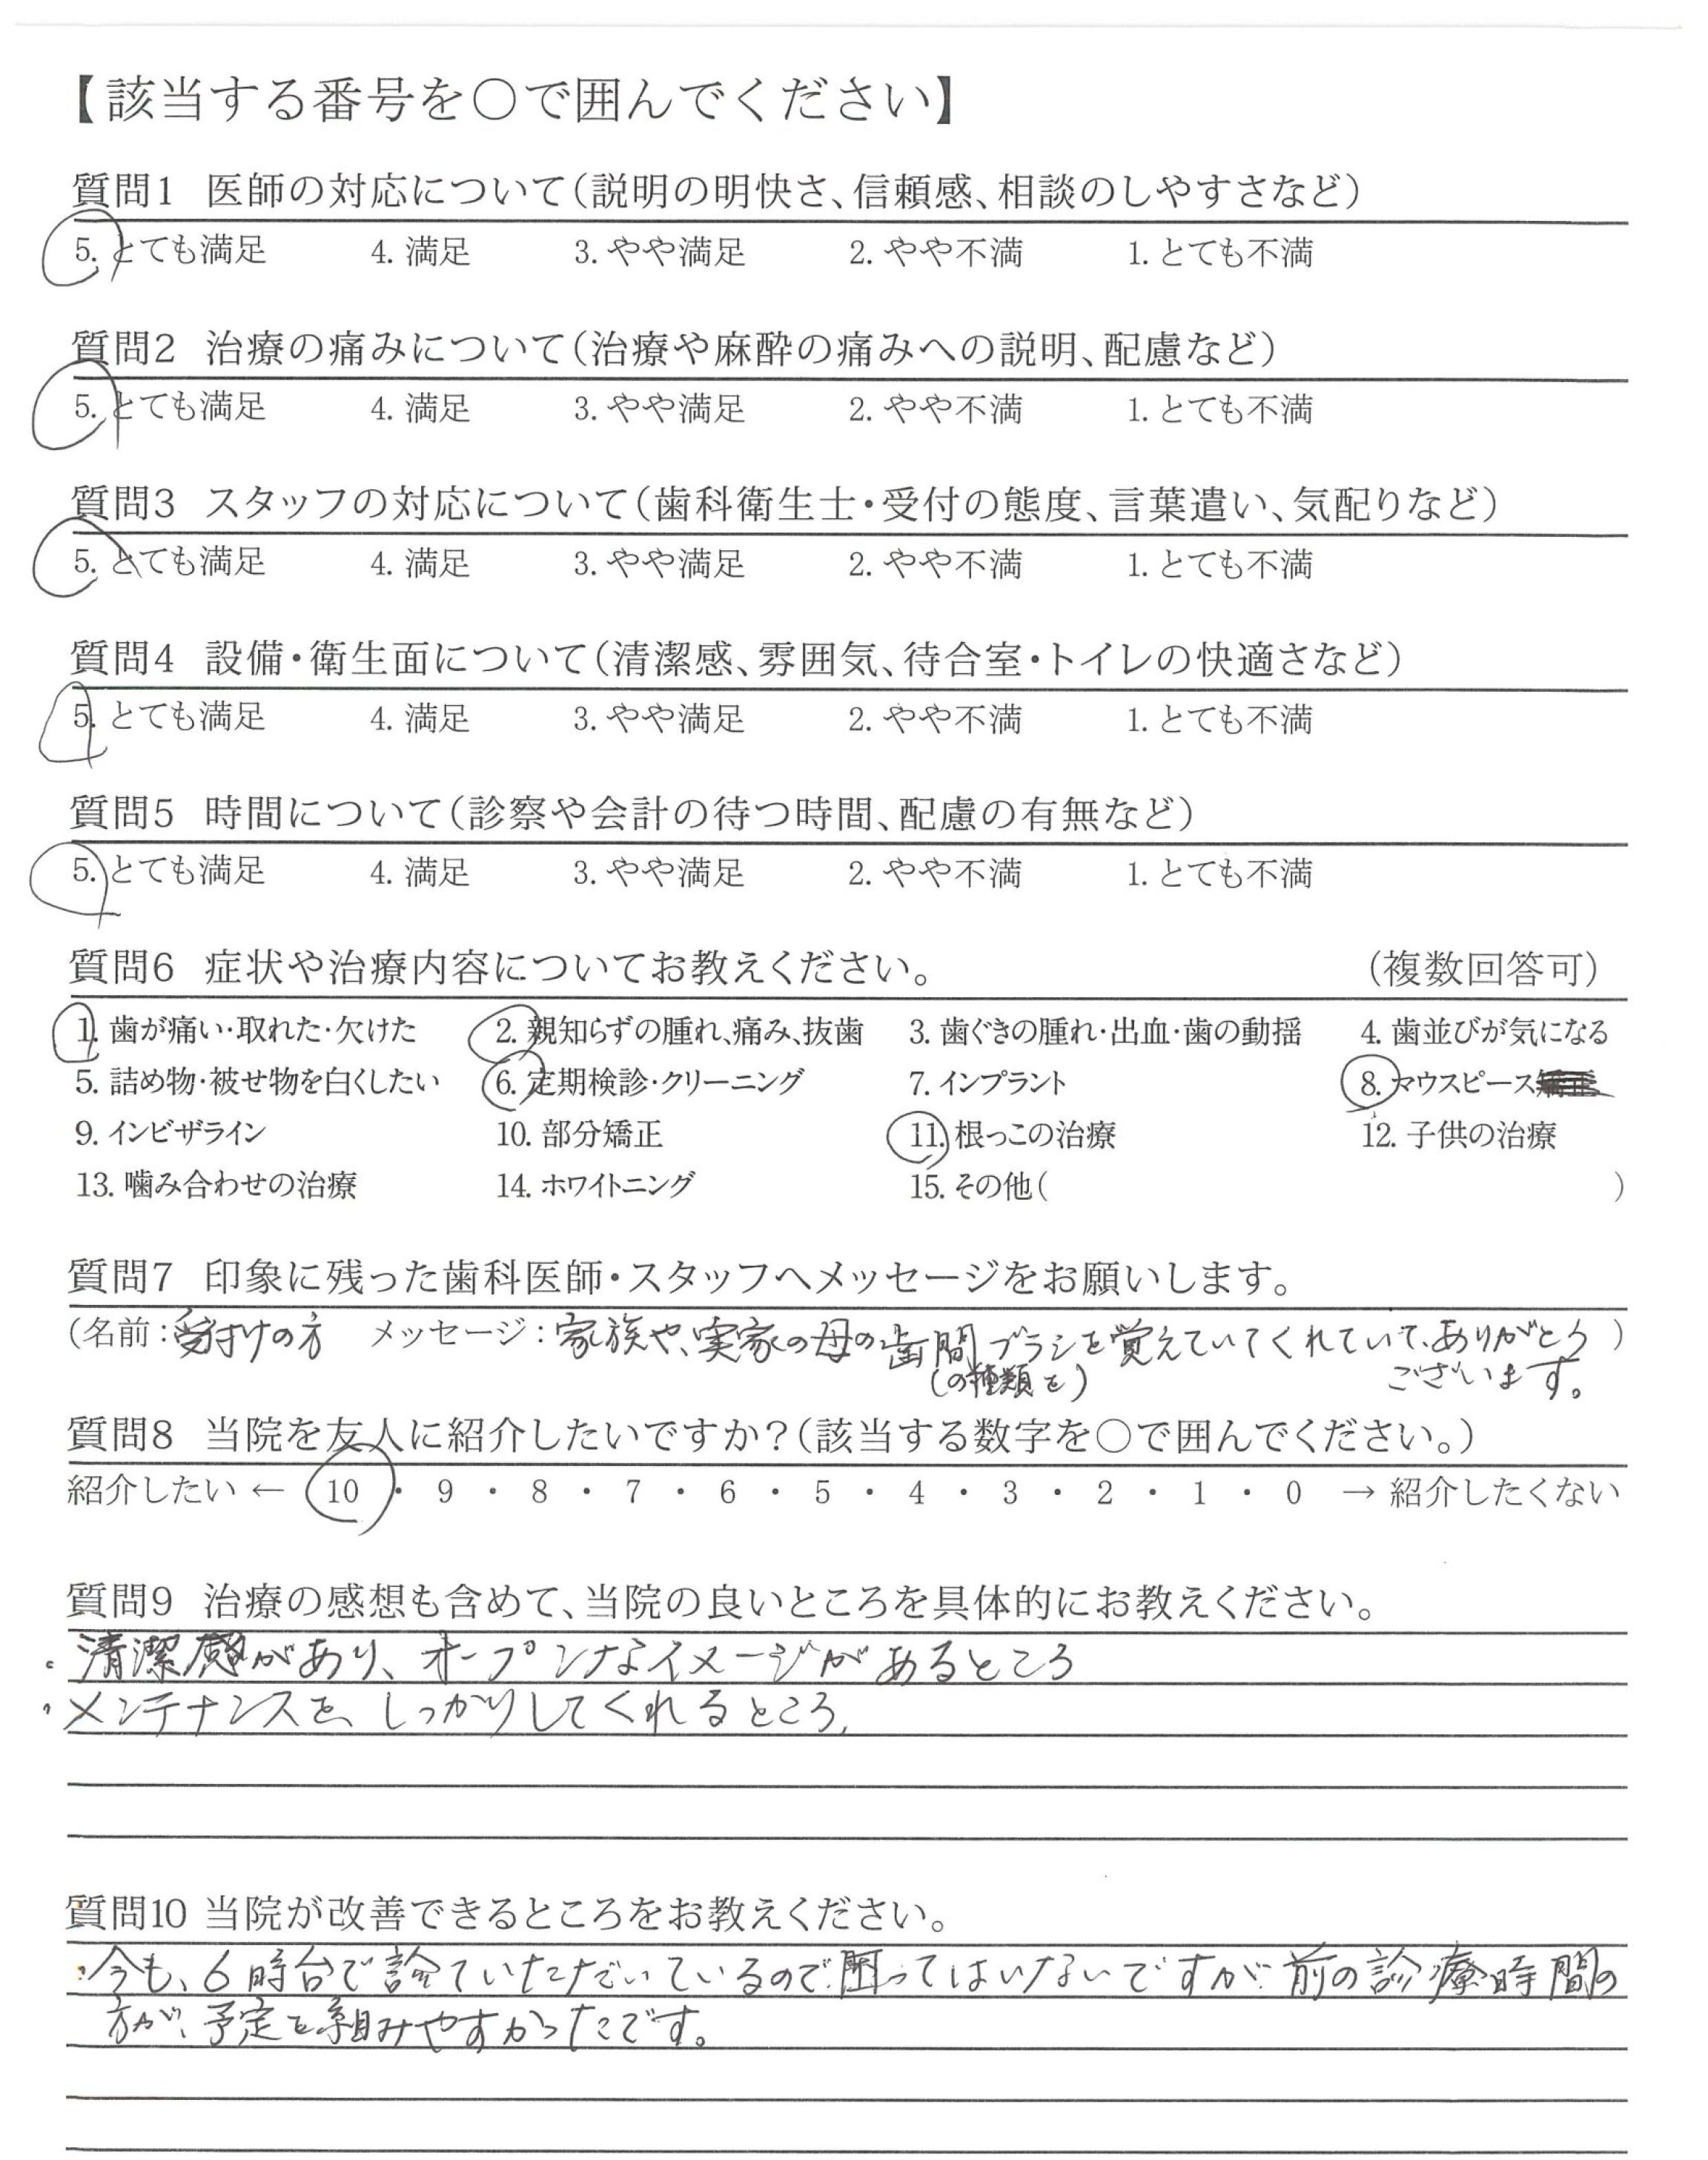 【該当する番号を○で囲んでください】
質問1 医師の対応について(説明の明快さ、信頼感、相談のしやすさなど)
5. とても満足 4. 満足 3. やや満足 2. やや不満 1. とても不満
質問2 治療の痛みについて(治療や麻酔の痛みへの説明、配慮など)
5. とても満足 4. 満足 3. やや満足 2. やや不満 1. とても不満
質問3 スタッフの対応について(歯科衛生士・受付の態度、言葉遣い、気配りなど)
5. とても満足 4. 満足 3. やや満足 2. やや不満 1. とても不満
質問4 設備・衛生面について(清潔感、雰囲気、待合室・トイレの快適さなど)
5. とても満足 4. 満足 3. やや満足 2. やや不満 1. とても不満
質問5 時間について(診察や会計の待つ時間、配慮の有無など)
5. とても満足 4. 満足 3. やや満足 2. やや不満 1. とても不満
質問6 症状や治療内容についてお教えください。 (複数回答可)
1. 歯が痛い・取れた・欠けた 2. 親知らずの腫れ、痛み、抜歯 3. 歯ぐきの腫れ・出血・歯の動揺 4. 歯並びが気になる
5. 詰め物・被せ物を白くしたい 6. 定期検診・クリーニング 7. インプラント 8. マウスピース
9. インビザライン 10. 部分矯正 11. 根っこの治療 12. 子供の治療
13. 噛み合わせの治療 14. ホワイトニング 15. その他( )
質問7 印象に残った歯科医師・スタッフへメッセージをお願いします。
(名前:受付けの方 メッセージ:家族や、実家の母の歯間ブラシを覚えていてくれていて、ありがとう)
(の種類を) ございます。
質問8 当院を友人に紹介したいですか?(該当する数字を○で囲んでください。)
紹介したい ← 10 ・ 9 ・ 8 ・ 7 ・ 6 ・ 5 ・ 4 ・ 3 ・ 2 ・ 1 ・ 0 → 紹介したくない
質問9 治療の感想も含めて、当院の良いところを具体的にお教えください。
・清潔感があり、オープンなイメージがあるところ
・メンテナンスを、しっかりしてくれるところ、
質問10 当院が改善できるところをお教えください。
・今も、6時台で診ていただいているので、困ってはいないですが、前の診療時間の
方が、予定を組みやすかったです。